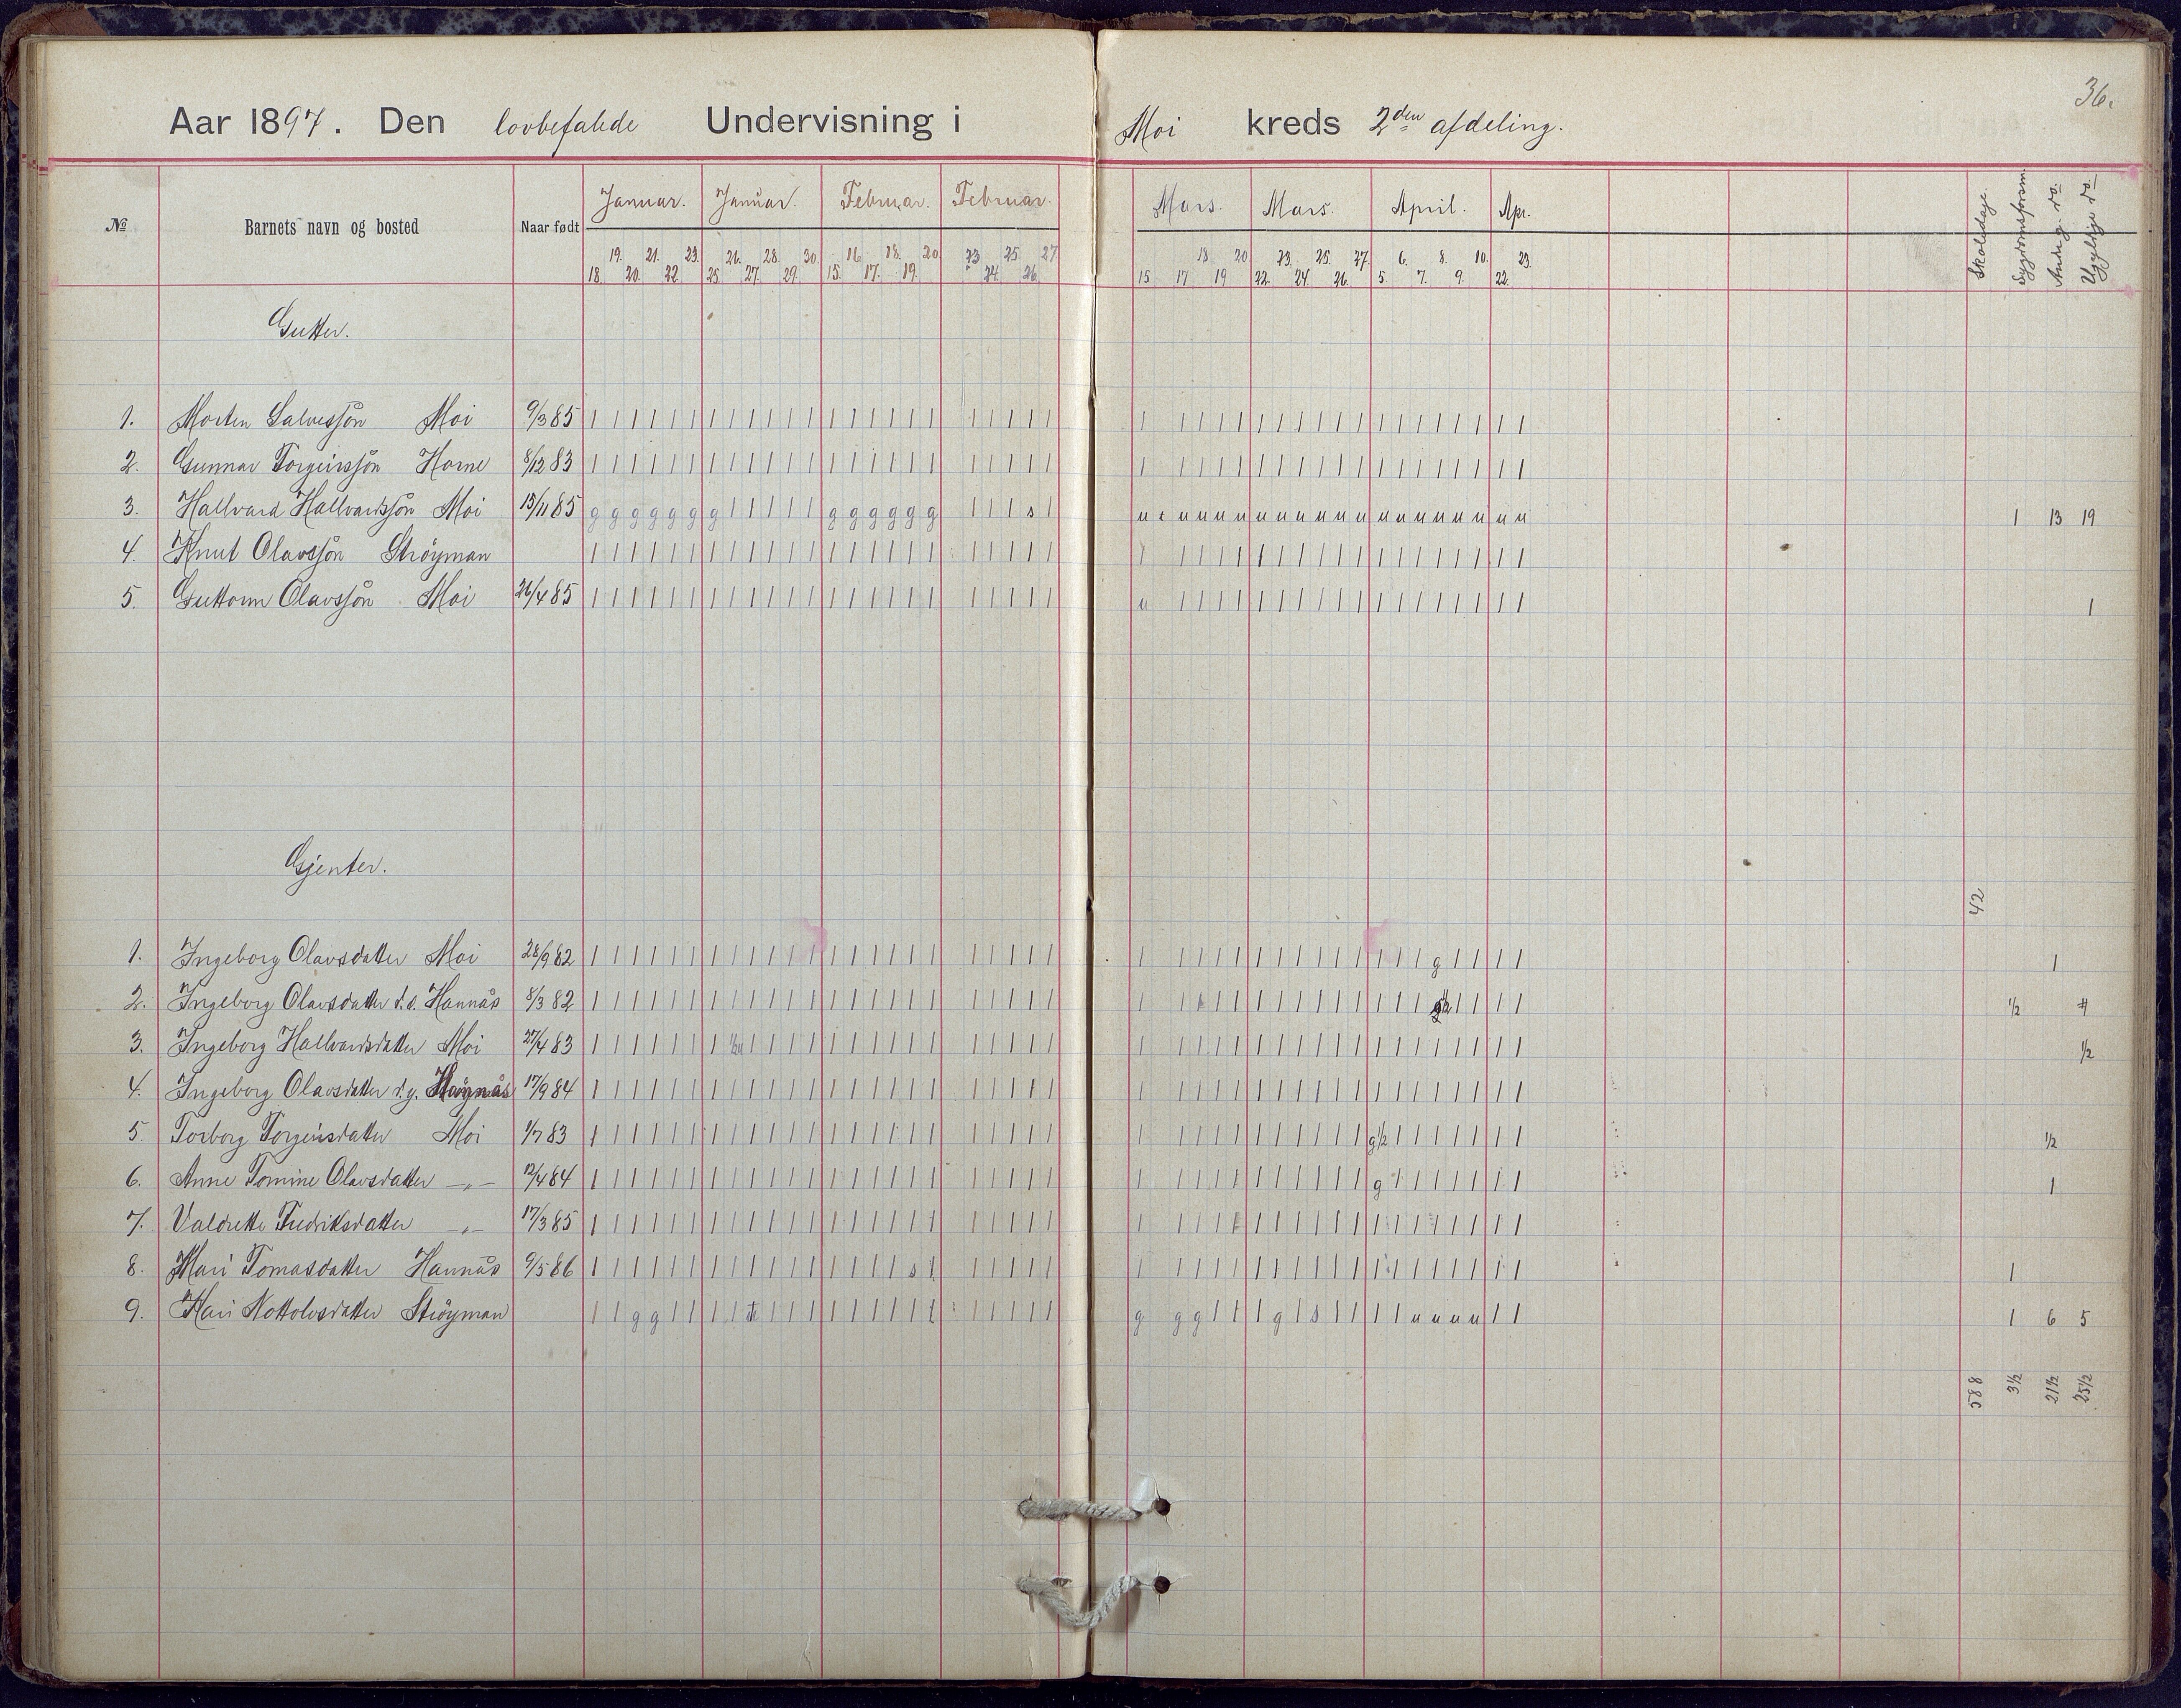 36.
Aar 1897. Den lovbefalede Undervisning i Moi kreds 2den afdeling.
№ Barnets navn og bosted Naar født Januar. Januar. Februar. Februar. Mars. Mars. April. Apr. Skoledage. Sygdomsforsøm. And. g. do. Ugyldige do.
19. 21. 23. 26. 28. 30. 16. 18. 20. 23 25. 27 18 20 23. 25. 27. 6. 8. 10. 23.
18. 20. 22. 25. 27. 29. 15. 17. 19. 24. 26. 15 17 19 22. 24. 26. 5. 7. 9. 22.
Gutter.
1. Morten Salvessøn Moi 9/3 85 | | | | | | | | | | | | | | | | | | | | | | | | | | | | | | | | | | | | | | | | | |
2. Gunnar Torgeirssøn Horne 8/12 83 | | | | | | | | | | | | | | | | | | | | | | | | | | | | | | | | | | | | | | | | | |
3. Hallvard Hallvardssøn Moi 15/11 85 g g g g g g g | | | | | g g g g g g | | | s | u u u u u u u u u u u u u u u u u u u 1 13 19
4. Knut Olavssøn Strøyman | | | | | | | | | | | | | | | | | | | | | | | | | | | | | | | | | | | | | | | | | |
5. Guttorm Olavssøn Moi 26/4 85 | | | | | | | | | | | | | | | | | | | | | | | u | | | | | | | | | | | | | | | | | | 1
Gjenter.
42
1. Ingeborg Olavsdatter Moi 28/9 82 | | | | | | | | | | | | | | | | | | | | | | | | | | | | | | | | | | | | g | | | | | 1
2. Ingeborg Olavsdatter d.e. Hannås 8/3 82 | | | | | | | | | | | | | | | | | | | | | | | | | | | | | | | | | | | | | | | | | ½
3. Ingeborg Hallvardsdatter Moi 27/4 83 | | | | | | | ½u | | | | | | | | | | | | | | | | | | | | | | | | | | | | | | | | | | ½
4. Ingeborg Olavsdatter d.y. 17/9 84 | | | | | | | | | | | | | | | | | | | | | | | | | | | | | | | | | | | | | | | | | |
5. Torborg Torgeirsdatter Moi 1/7 83 | | | | | | | | | | | | | | | | | | | | | | | | | | | | | | | | | | g½ | | | | | | | ½
6. Anne Tomine Olavsdatter —„— 12/4 84 | | | | | | | | | | | | | | | | | | | | | | | | | | | | | | | | | | g | | | | | | | 1
7. Valdrette Fredriksdatter —„— 17/3 85 | | | | | | | | | | | | | | | | | | | | | | | | | | | | | | | | | | | | | | | | | |
8. Mari Tomasdatter Hannås 9/5 86 | | | | | | | | | | | | | | | | s | | | | | | | | | | | | | | | | | | | | | | | | | 1
9. Kari Nottolvsdatter Strøyman | | g g | | | | | | | | | | | | | | | | | | | g g g | | | | g | s | | | | u u u u | | 1 6 5
588 3½ 21½ 25½